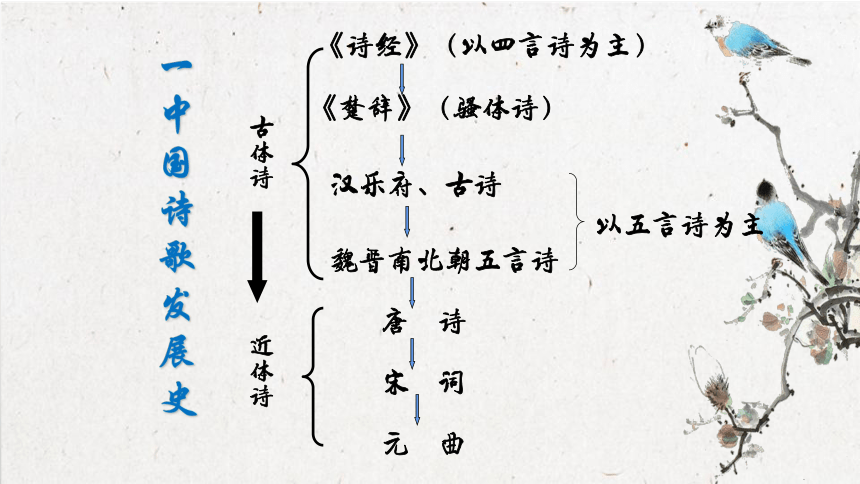 一中国诗歌发展史
古体诗
近体诗
《诗经》（以四言诗为主）
《楚辞》（骚体诗）
汉乐府、古诗
魏晋南北朝五言诗
以五言诗为主
唐 诗
宋 词
元 曲